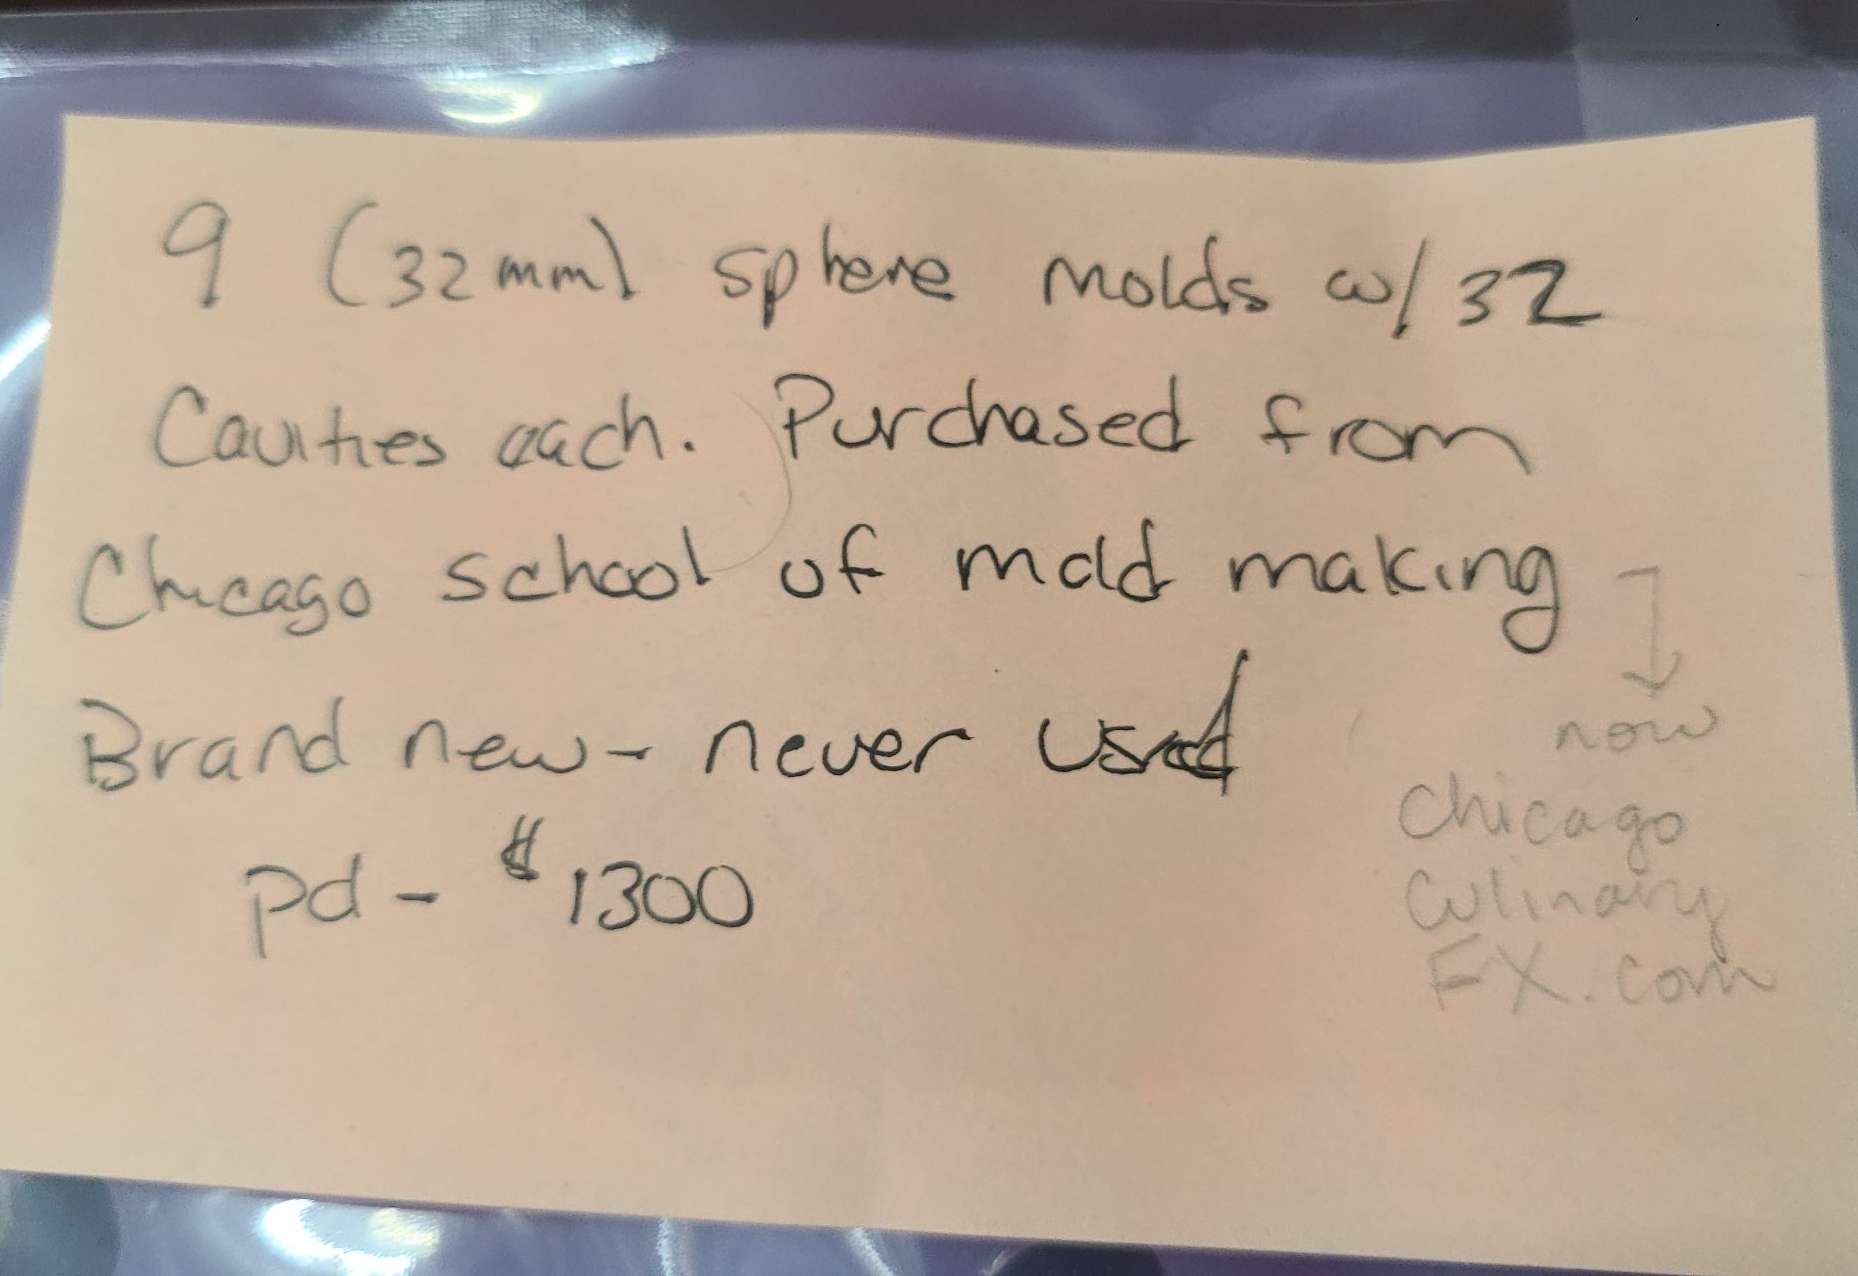 9 (32mm) sphere molds w/ 32
Cavities each. Purchased from
Chicago school of mold making
Brand new - never used
pd - $1300
now
Chicago
Culinary
FX.com